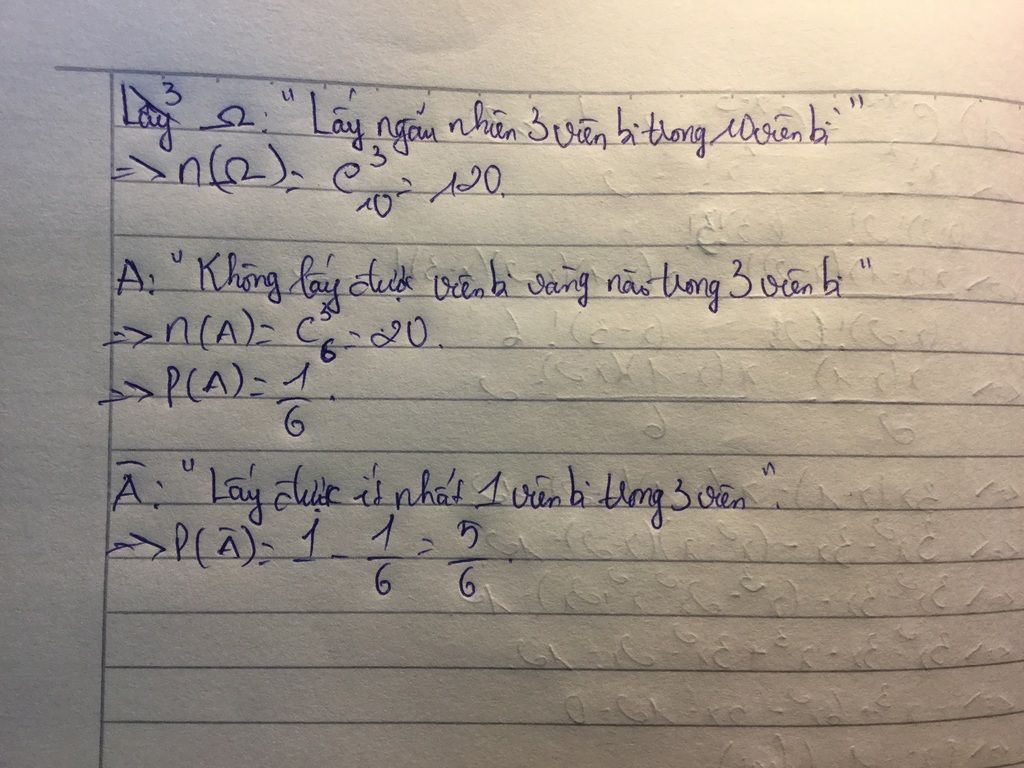 Lấy 3 Ω: "Lấy ngẫu nhiên 3 viên bi trong 10 viên bi"
=> n(Ω) = C³₁₀ = 120.
A: "Không lấy được viên bi vàng nào trong 3 viên bi"
=> n(A) = C³₆ = 20.
=> P(A) = 1/6.
Ā: "Lấy được ít nhất 1 viên bi trong 3 viên".
=> P(Ā) = 1 - 1/6 = 5/6.